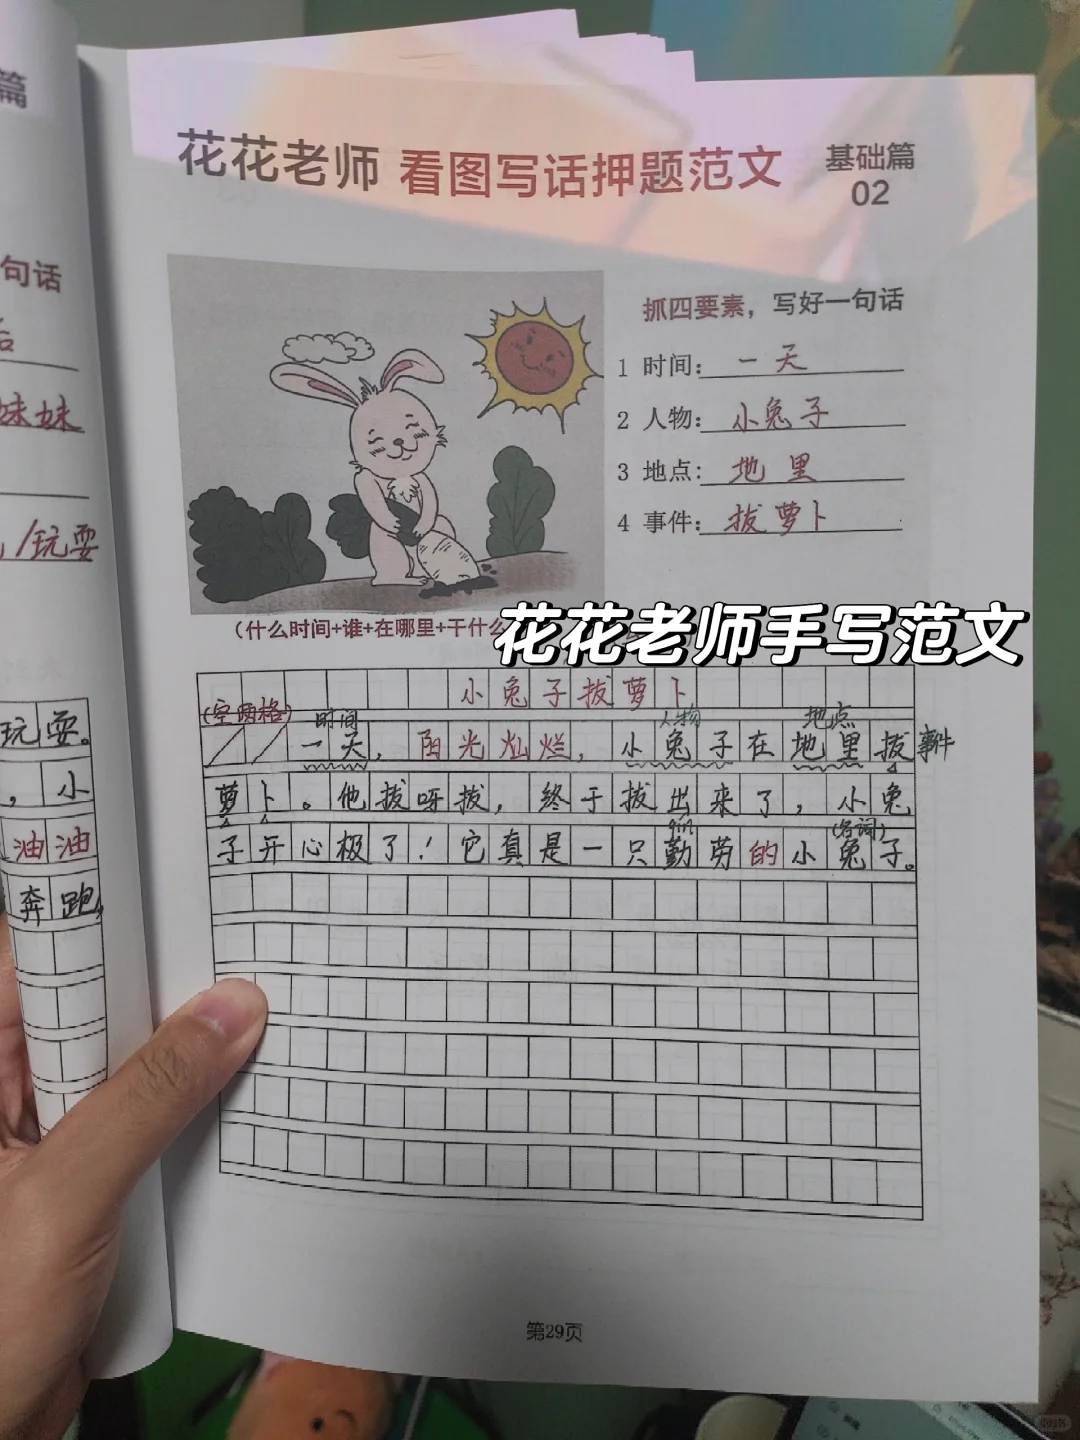 篇
句话
妹妹
/玩耍
玩耍。
，小
油油
奔跑，
花花老师 看图写话押题范文 基础篇
02
抓四要素，写好一句话
1 时间：一天
2 人物：小兔子
3 地点：地里
4 事件：拔萝卜
（什么时间+谁+在哪里+干什么
花花老师手写范文
小兔子拔萝卜
（空两格） 时间 人物 地点
一天，阳光灿烂，小兔子在地里拔 事件
萝卜。他拔呀拔，终于拔出来了，小兔
qín （名词）
子开心极了！它真是一只勤劳的小兔子。
第29页